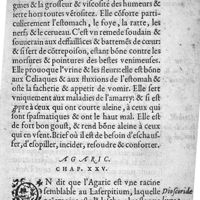 gines & la grosseur & viscosité des humeurs &
iette hors toutes vérosites. Elle côforte parti-
culierement l'estomach, le foye, la ratte, les
nerfs, & le cerueau. C'est vn remede soudain &
souuerain aux defaillâces & battemês de cœur:
& si sert de côtrepoison, estant bône contre les
morsures & pointures des bestes venimeuses.
Elle prouoque l'vrine & les fleurs: elle est bône
aux Celiaques & aux fluxions de l'estomach: &
oste la facherie & appetit de vomir. Elle sert
vniquement aux maladies de l'amarry: & si est
propre à ceux qui ont courte aleine, à ceux qui
sont spasmatiques & ont le haut mal. Elle est
de fort bon goust, & rend bône aleine à ceux
qui en vsent. Brief où il est de besoin d'eschauf-
fer, d'espoillier, incider, resoudre & conforter.
AGARIC.
CHAP. XXV.
ON dit que l'Agaric est vne racine
semblable au Laserpitium, laquelle Dioscoride